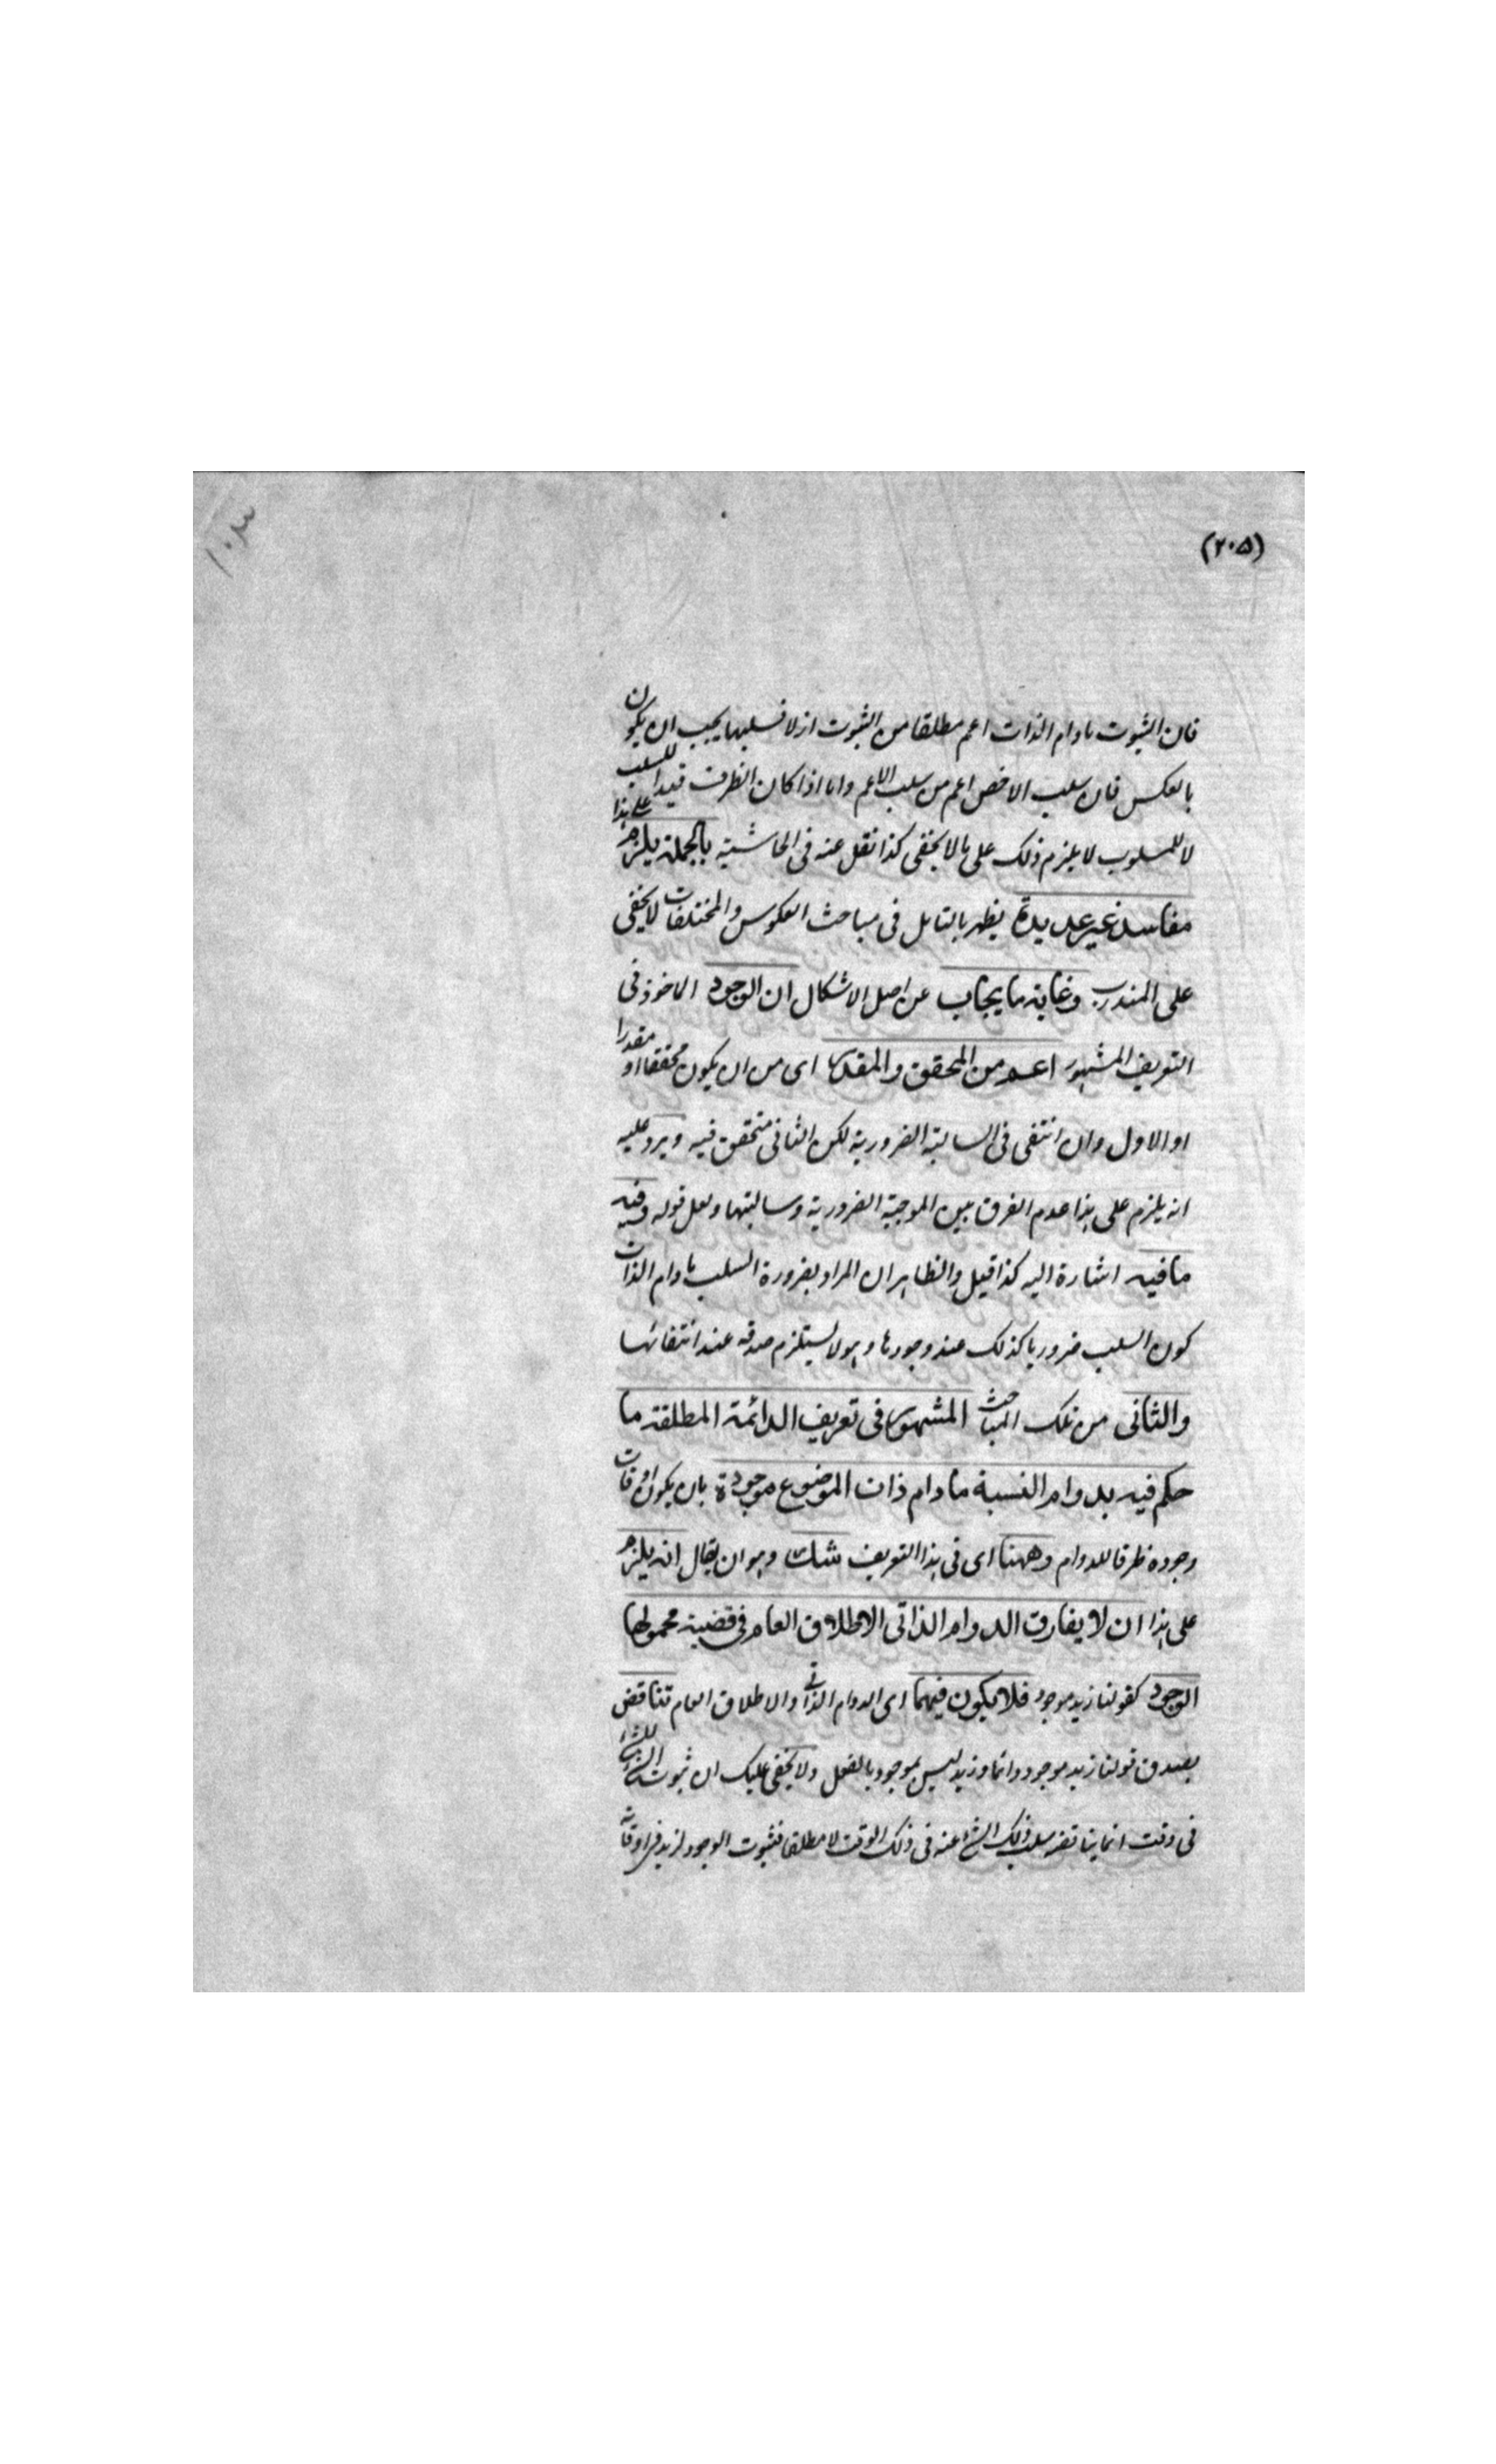 (۲۰۵)
۱۰۳
فان الثبوت مادام الذات اعم مطلقا من الثبوت ازلا فسلبها يجب ان يكون
بالعكس فان سلب الاخص اعم من سلب الاعم واما اذا كان الظرف قيدا للسلب
لا للمسلوب لا يلزم ذلك على ما لا يخفى كذا نقل عنه فى الحاشية بالجملة يلزم على هذا
مفاسد غير عديدة يظهر بالتامل فى مباحث العكوس والمختلطات لا يخفى
على المتدرب وغاية ما يجاب عن اصل الاشكال ان الوجود الماخوذ فى
التعريف المشهور اعم من المحقق والمقدر اى من ان يكون محققا او مقدرا
او الاول وان انتفى فى السالبة الضرورية لكن الثانى متحقق فيه ويرد عليه
انه يلزم على هذا عدم الفرق بين الموجبة الضرورية وسالبتها ولعل قوله وفيه
ما فيه اشارة اليه كذا قيل والظاهر ان المراد بضرورة السلب مادام الذات
كون السلب ضروريا كذلك عند وجودها وهو لا يستلزم صدقه عند انتفائها
والثانى من تلك المباحث المشهور فى تعريف الدائمة المطلقة ما
حكم فيه بدوام النسبة مادام ذات الموضوع موجودة بان يكون اوقات
وجوده ظرفا للدوام وههنا اى فى هذا التعريف شك وهو ان يقال انه يلزم
على هذا ان لا يفارق الدوام الذاتى الاطلاق العام فى قضية محمولها
الوجود كقولنا زيد موجود فلا يكون فيهما اى الدوام الذاتى والاطلاق العام تناقض
بصدق قولنا زيد موجود دائما وزيد ليس بموجود بالفعل ولا يخفى عليك ان ثبوت الشئ للشئ
فى وقت انما يناقضه سلب ذلك الشئ عنه فى ذلك الوقت لا مطلقا فثبوت الوجود لزيد فى اوقاته